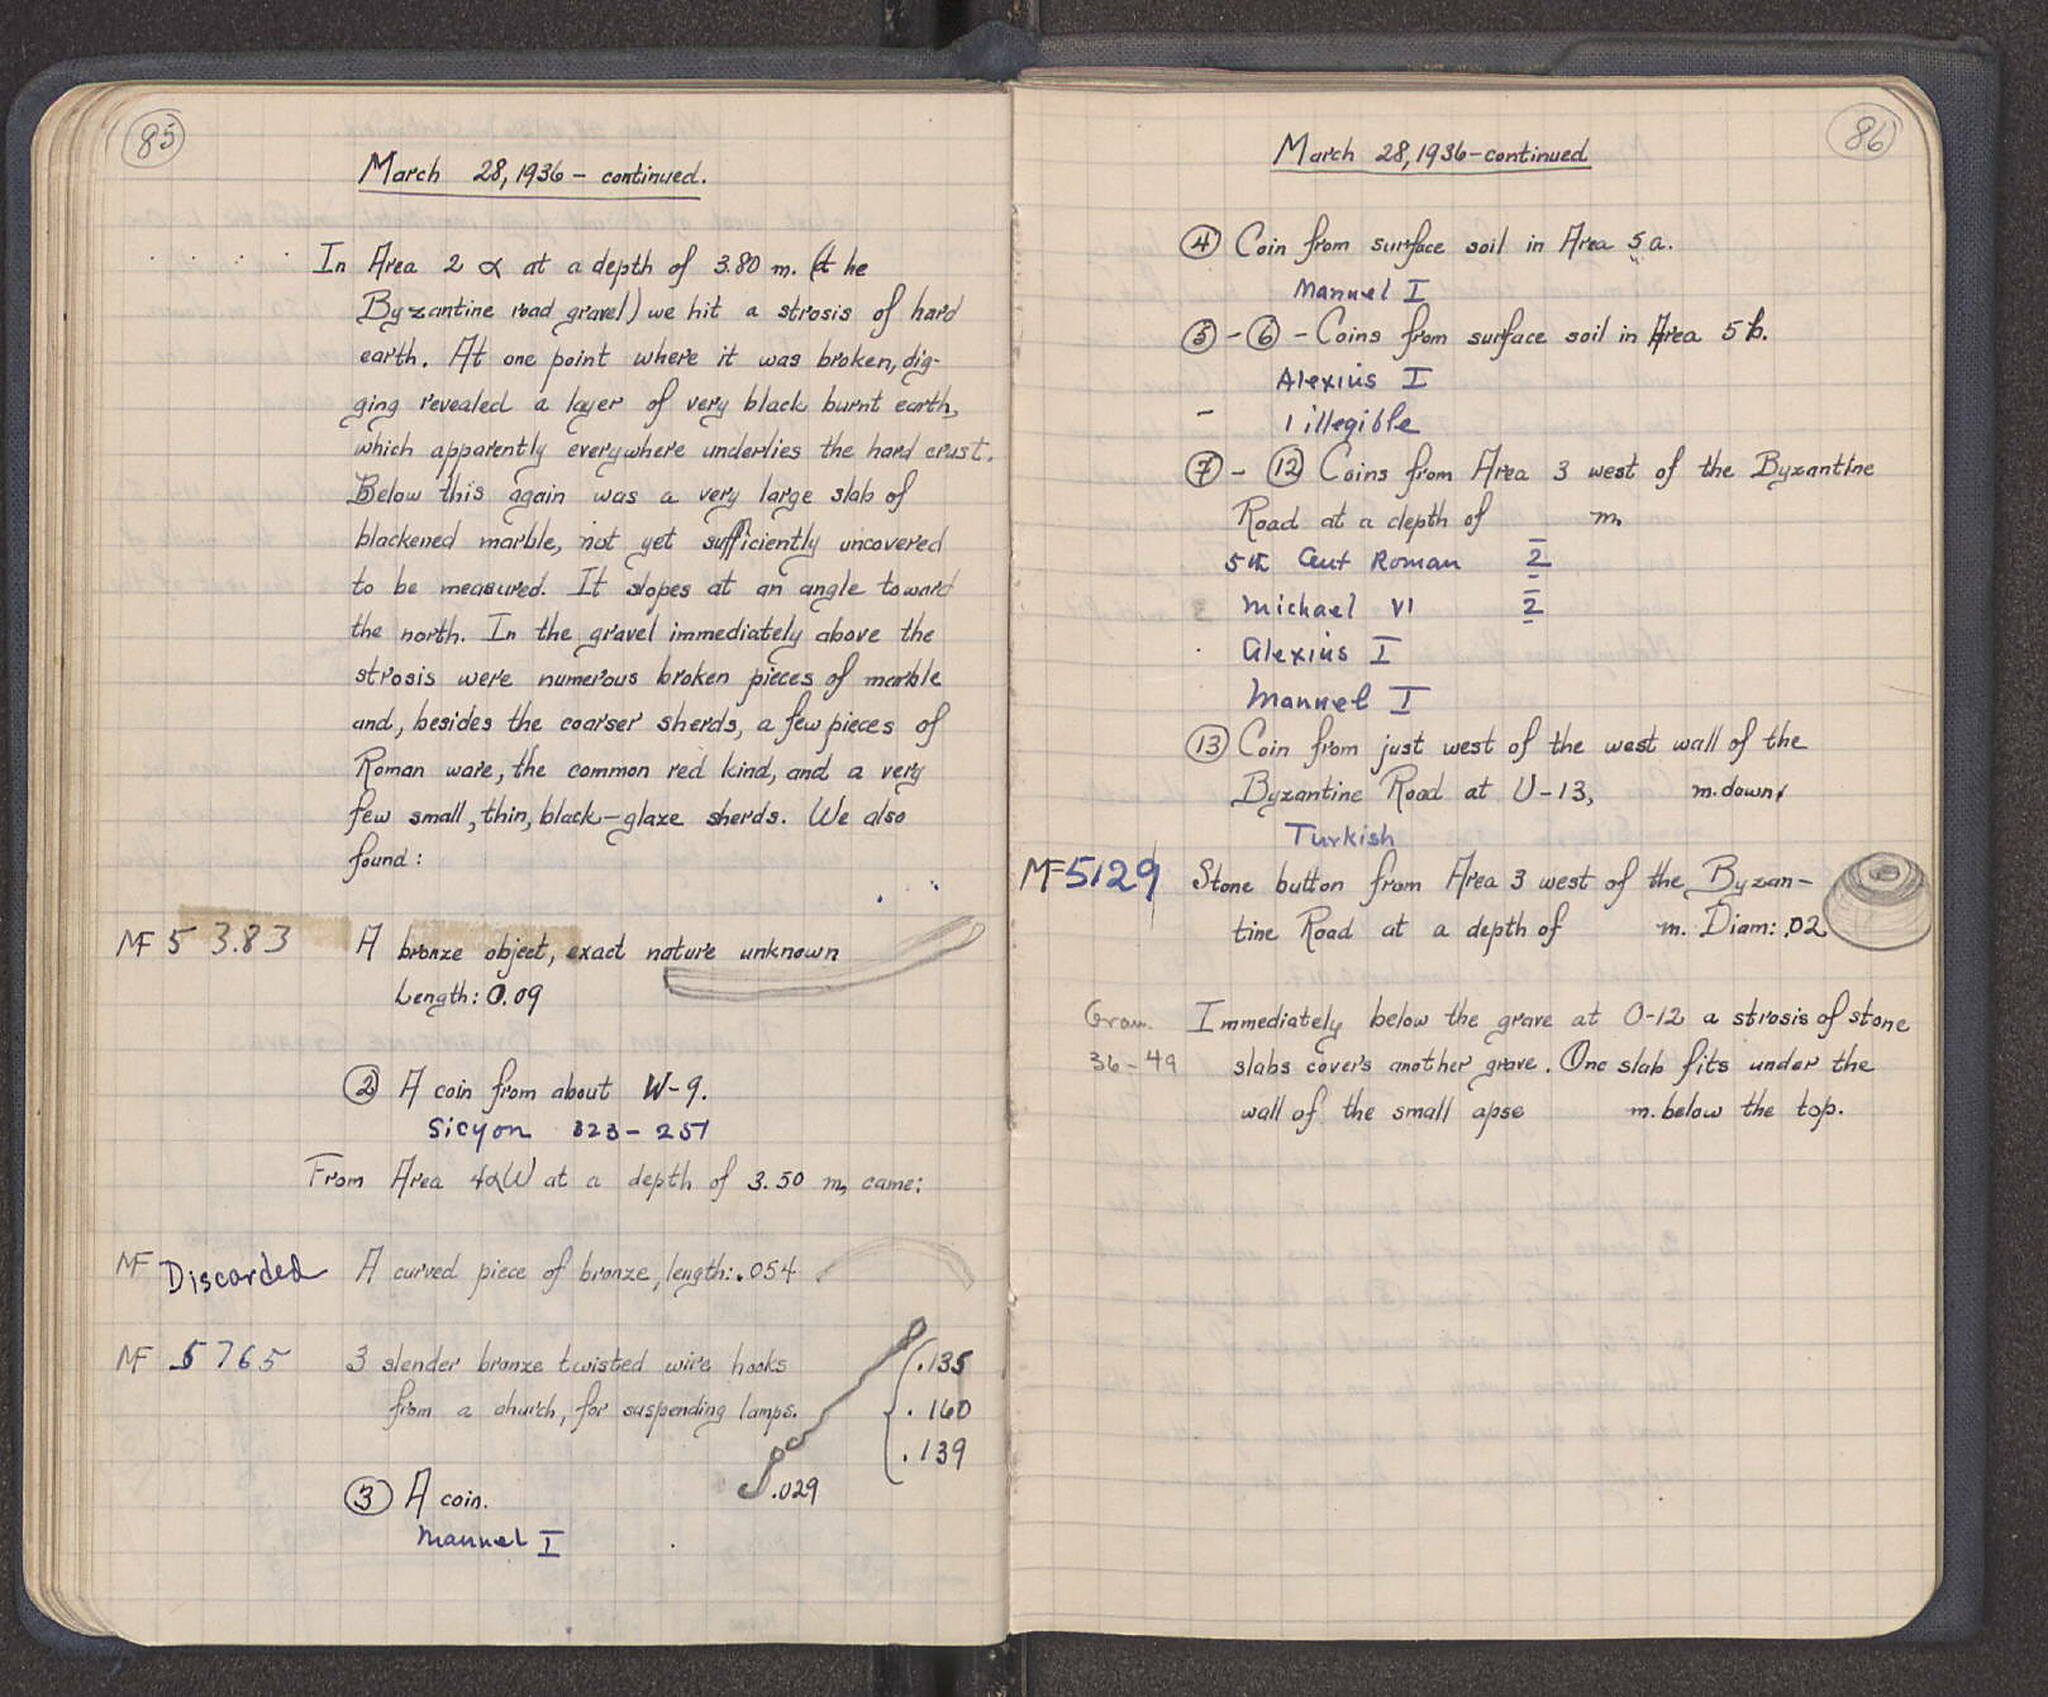 85
March 28, 1936 - continued.
In Area 2 α at a depth of 3.80 m. (the
Byzantine road gravel) we hit a strosis of hard
earth. At one point where it was broken, dig-
ging revealed a layer of very black burnt earth,
which apparently everywhere underlies the hard crust.
Below this again was a very large slab of
blackened marble, not yet sufficiently uncovered
to be measured. It slopes at an angle toward
the north. In the gravel immediately above the
strosis were numerous broken pieces of marble
and, besides the coarser sherds, a few pieces of
Roman ware, the common red kind, and a very
few small, thin, black-glaze sherds. We also
found:
MF 5383 A bronze object, exact nature unknown
Length: 0.09
② A coin from about W-9.
Sicyon 323 - 251
From Area 4αW at a depth of 3.50 m, came:
MF Discarded A curved piece of bronze, length: .054
MF 5765 3 slender bronze twisted wire hooks .135
from a church, for suspending lamps. .160
.139
.029
③ A coin.
Manuel I
86
March 28, 1936 - continued
④ Coin from surface soil in Area 5a.
Manuel I
⑤ - ⑥ - Coins from surface soil in Area 5b.
Alexius I
- 1 illegible
⑦ - ⑫ Coins from Area 3 west of the Byzantine
Road at a depth of m.
5th Cent Roman 2
Michael VI 2
Alexius I
Manuel I
⑬ Coin from just west of the west wall of the
Byzantine Road at U-13, m. down.
Turkish
MF 5129 Stone button from Area 3 west of the Byzan-
tine Road at a depth of m. Diam: .02
Grav. Immediately below the grave at O-12 a strosis of stone
36-49 slabs covers another grave. One slab fits under the
wall of the small apse m. below the top.